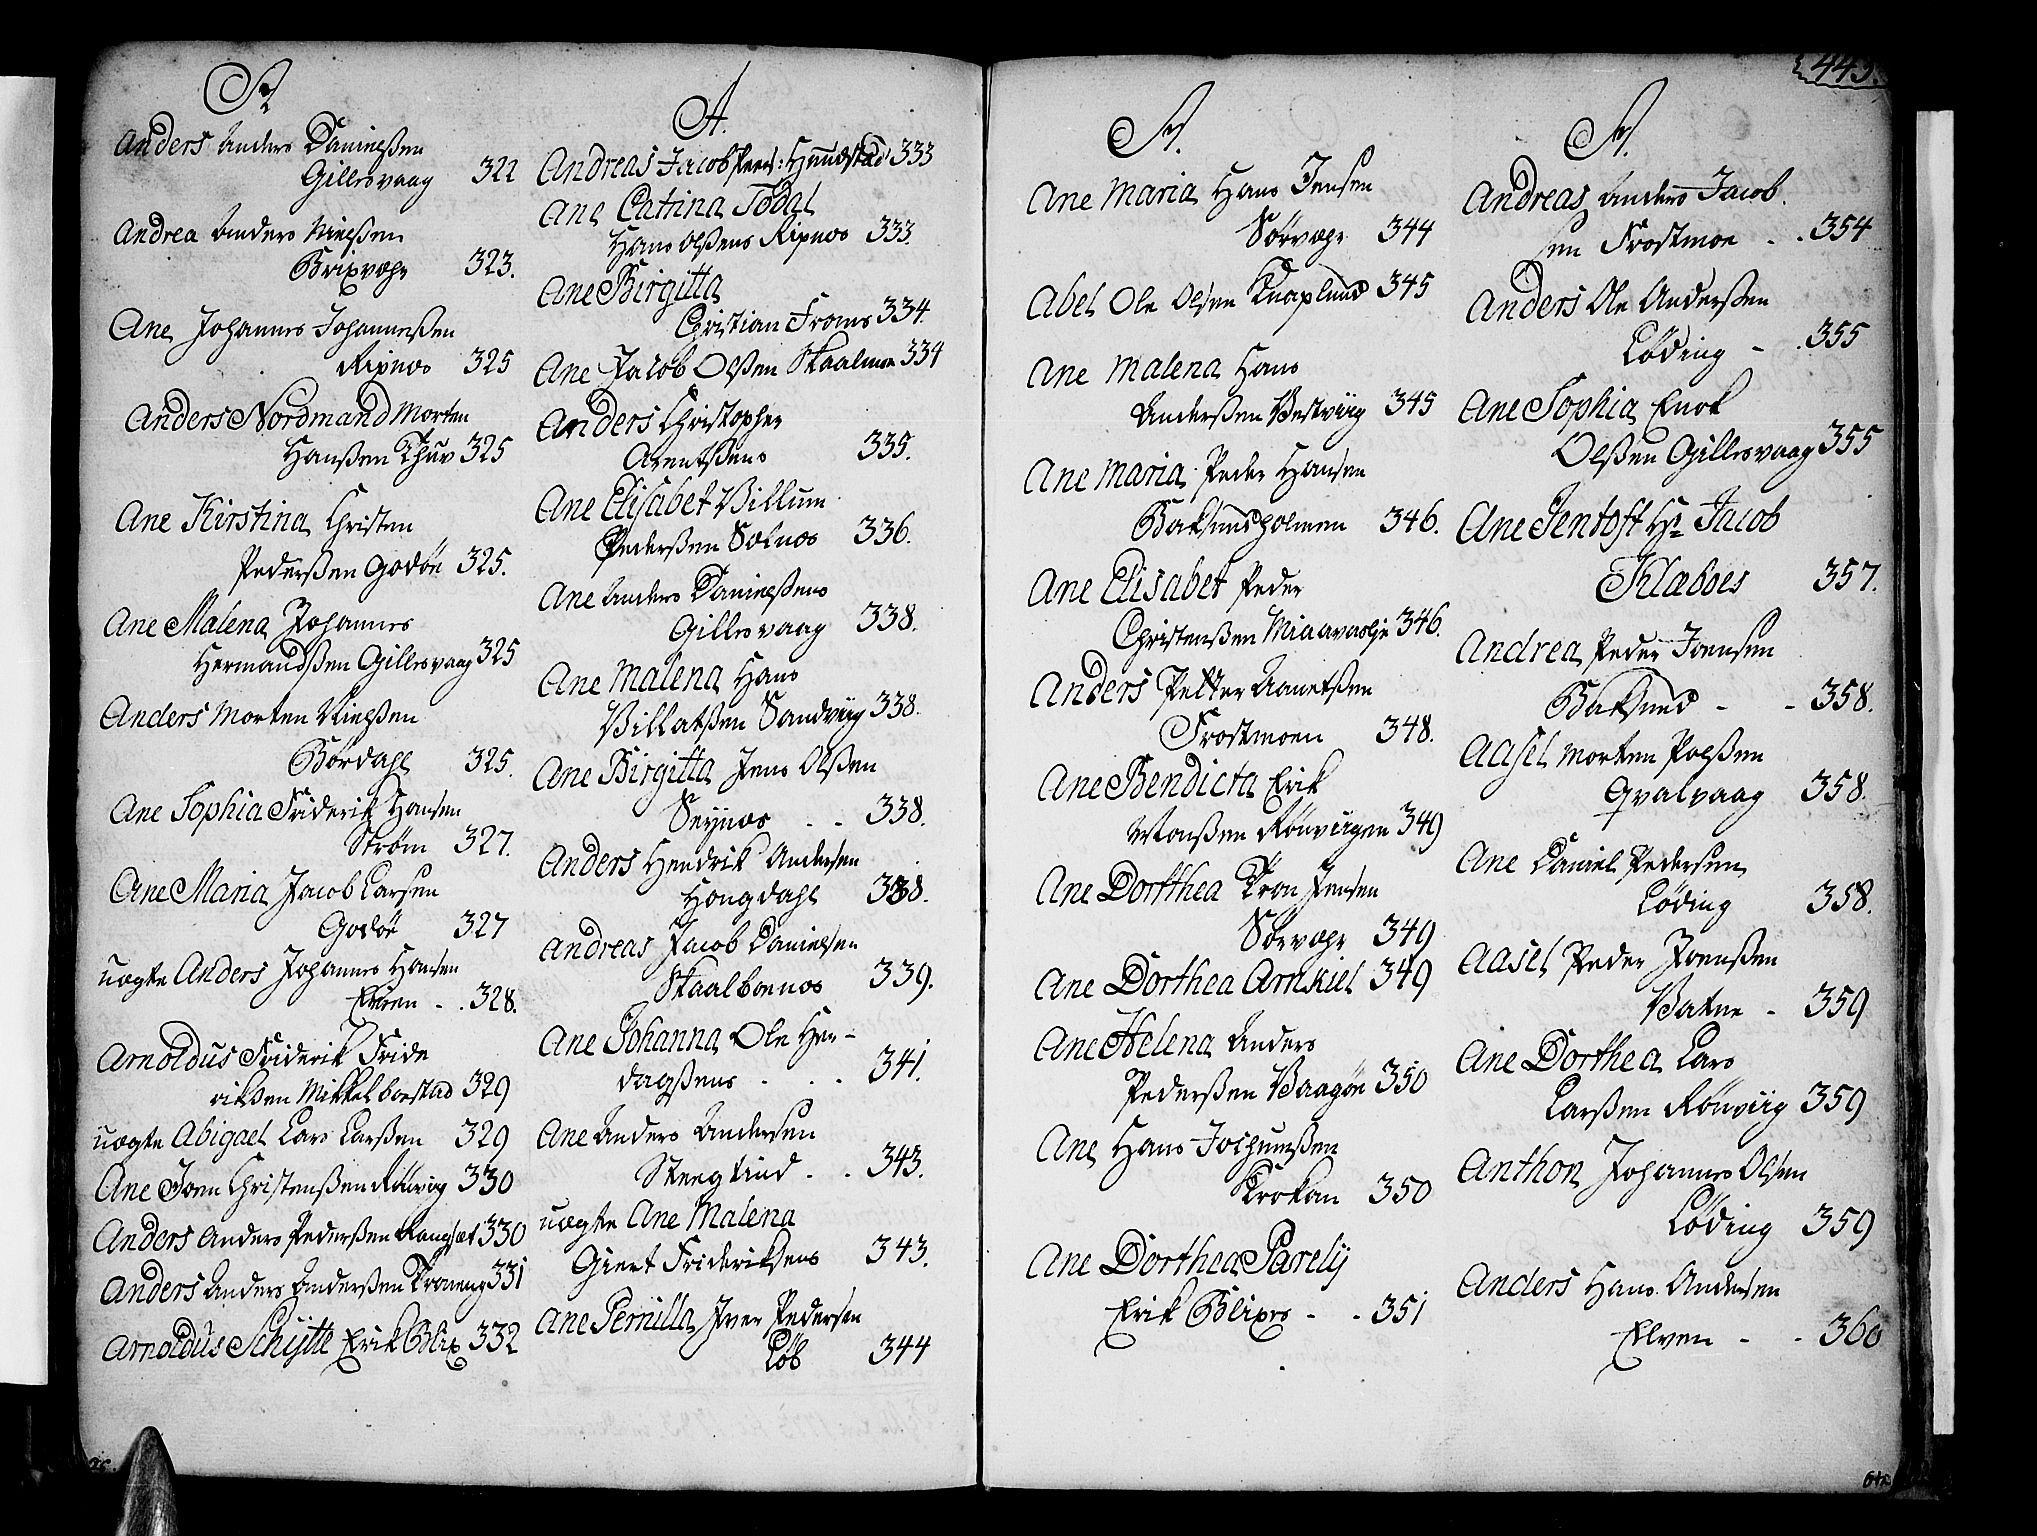 A
Anders Anders Danielßen
Gillesvaag 322
Andrea Anders Nielßen
Brixvahr 323.
Ane Johannes Johannesßen
Ripnes 325
Anders Nordmand Morten
Hanßen Thuv 325
Ane Kirstina Christen
Pederßen Godöe 325.
Ane Malena Johannes
Hermandßen Gillesvaag 325
Anders Morten Nielßen
Børdahl 325.
Ane Sophia Friderik Hansen
Strøm 327.
Ane Maria Jacob Larsen
Godöe 327
uægte Anders Johannes Hansen
Elven - . 328.
Arnoldus Friderik Fride
rikßen Mikkelboestad 329
uægte Abigael Lars Larßen 329
Ane Joen Christenßen Rönvig 330
Anders Anders Pederßen 330
Anders Anders Anderßen 331
Arnoldus Schytte Erik Blix 332
A.
Andreas Jacob Peers: Hundstad 333
Ane Catrina Todal
Hans Olßens Ripnes 333.
Ane Birgitta
Christian Froms 334.
Ane Jacob Olßen Skaalmoe 334
Anders Christopher
Arentßens 335.
Ane Elisabet Villum
Pederßen Solnes 336.
Ane Anders Danielßens
Gillesvaag 338.
Ane Malena Hans
Villatßen Sandviig 338.
Ane Birgitta Jens Olßen
Seynes . . 338.
Anders Hendrik Andersen
Hougdahl 338.
Andreas Jacob Danielsen
Skaalboenes 339.
Ane Johanna Ole Her-
dagßens . . . 341.
Ane Anders Andersen
Steeglind . . 343.
uægte Ane Malena
Giert Frideriksens 343.
Ane Pernilla Iver Pedersen
Løb 344
A.
Ane Maria Hans Jensen
Sörvahr 344
Abel Ole Olsen Knaplund 345
Ane Malena Hans
Anderßen Vestviig 345
Ane Maria Peder Hansen
Baksundholmen 346.
Ane Elisabet Peder
Christenßen Miaavaslie 346.
Anders Petter Aanetßen
Frostmoen 348.
Ane Bendicta Erik
Monßen Rönviigen 349
Ane Dorthea Tron Jensen
Sørvahr 349
Ane Dorthea Arnkiel 349
Ane Helena Anders
Pederßen Vaagöe 350
Ane Hans Jochumßen
Krokan 350
Ane Dorthea Parelÿ
Erik Blixes - . 351
443.
A.
Andreas Anders Jacob.
sen Frostmoe . . 354
Anders Ole Anderßen
Løding - . 355
Ane Sophia Enok
Olßen Gillesvaag 355
Ane Jentoft Hr Jacob
Klæboes 357.
Andrea Peder Joensen
Baksund - - 358.
Aasel Morten Polßen
Qvalvaag 358.
Ane Daniel Pedersen
Løding 358.
Aasel Peder Joenßen
Vatne . 359
Ane Dorthea Lars
Larßen Rönviig 359
Anthon Johannes Olsen
Løding 359
Anders Hans Andersen
Elven - - 360